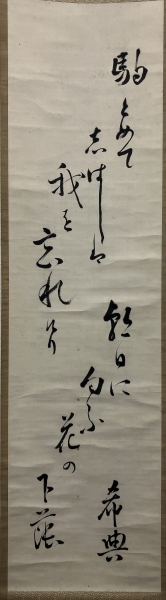 駒とめて
志はしは
我を忘れけり
朝日に
匂ふ
花の
下蔭
希典